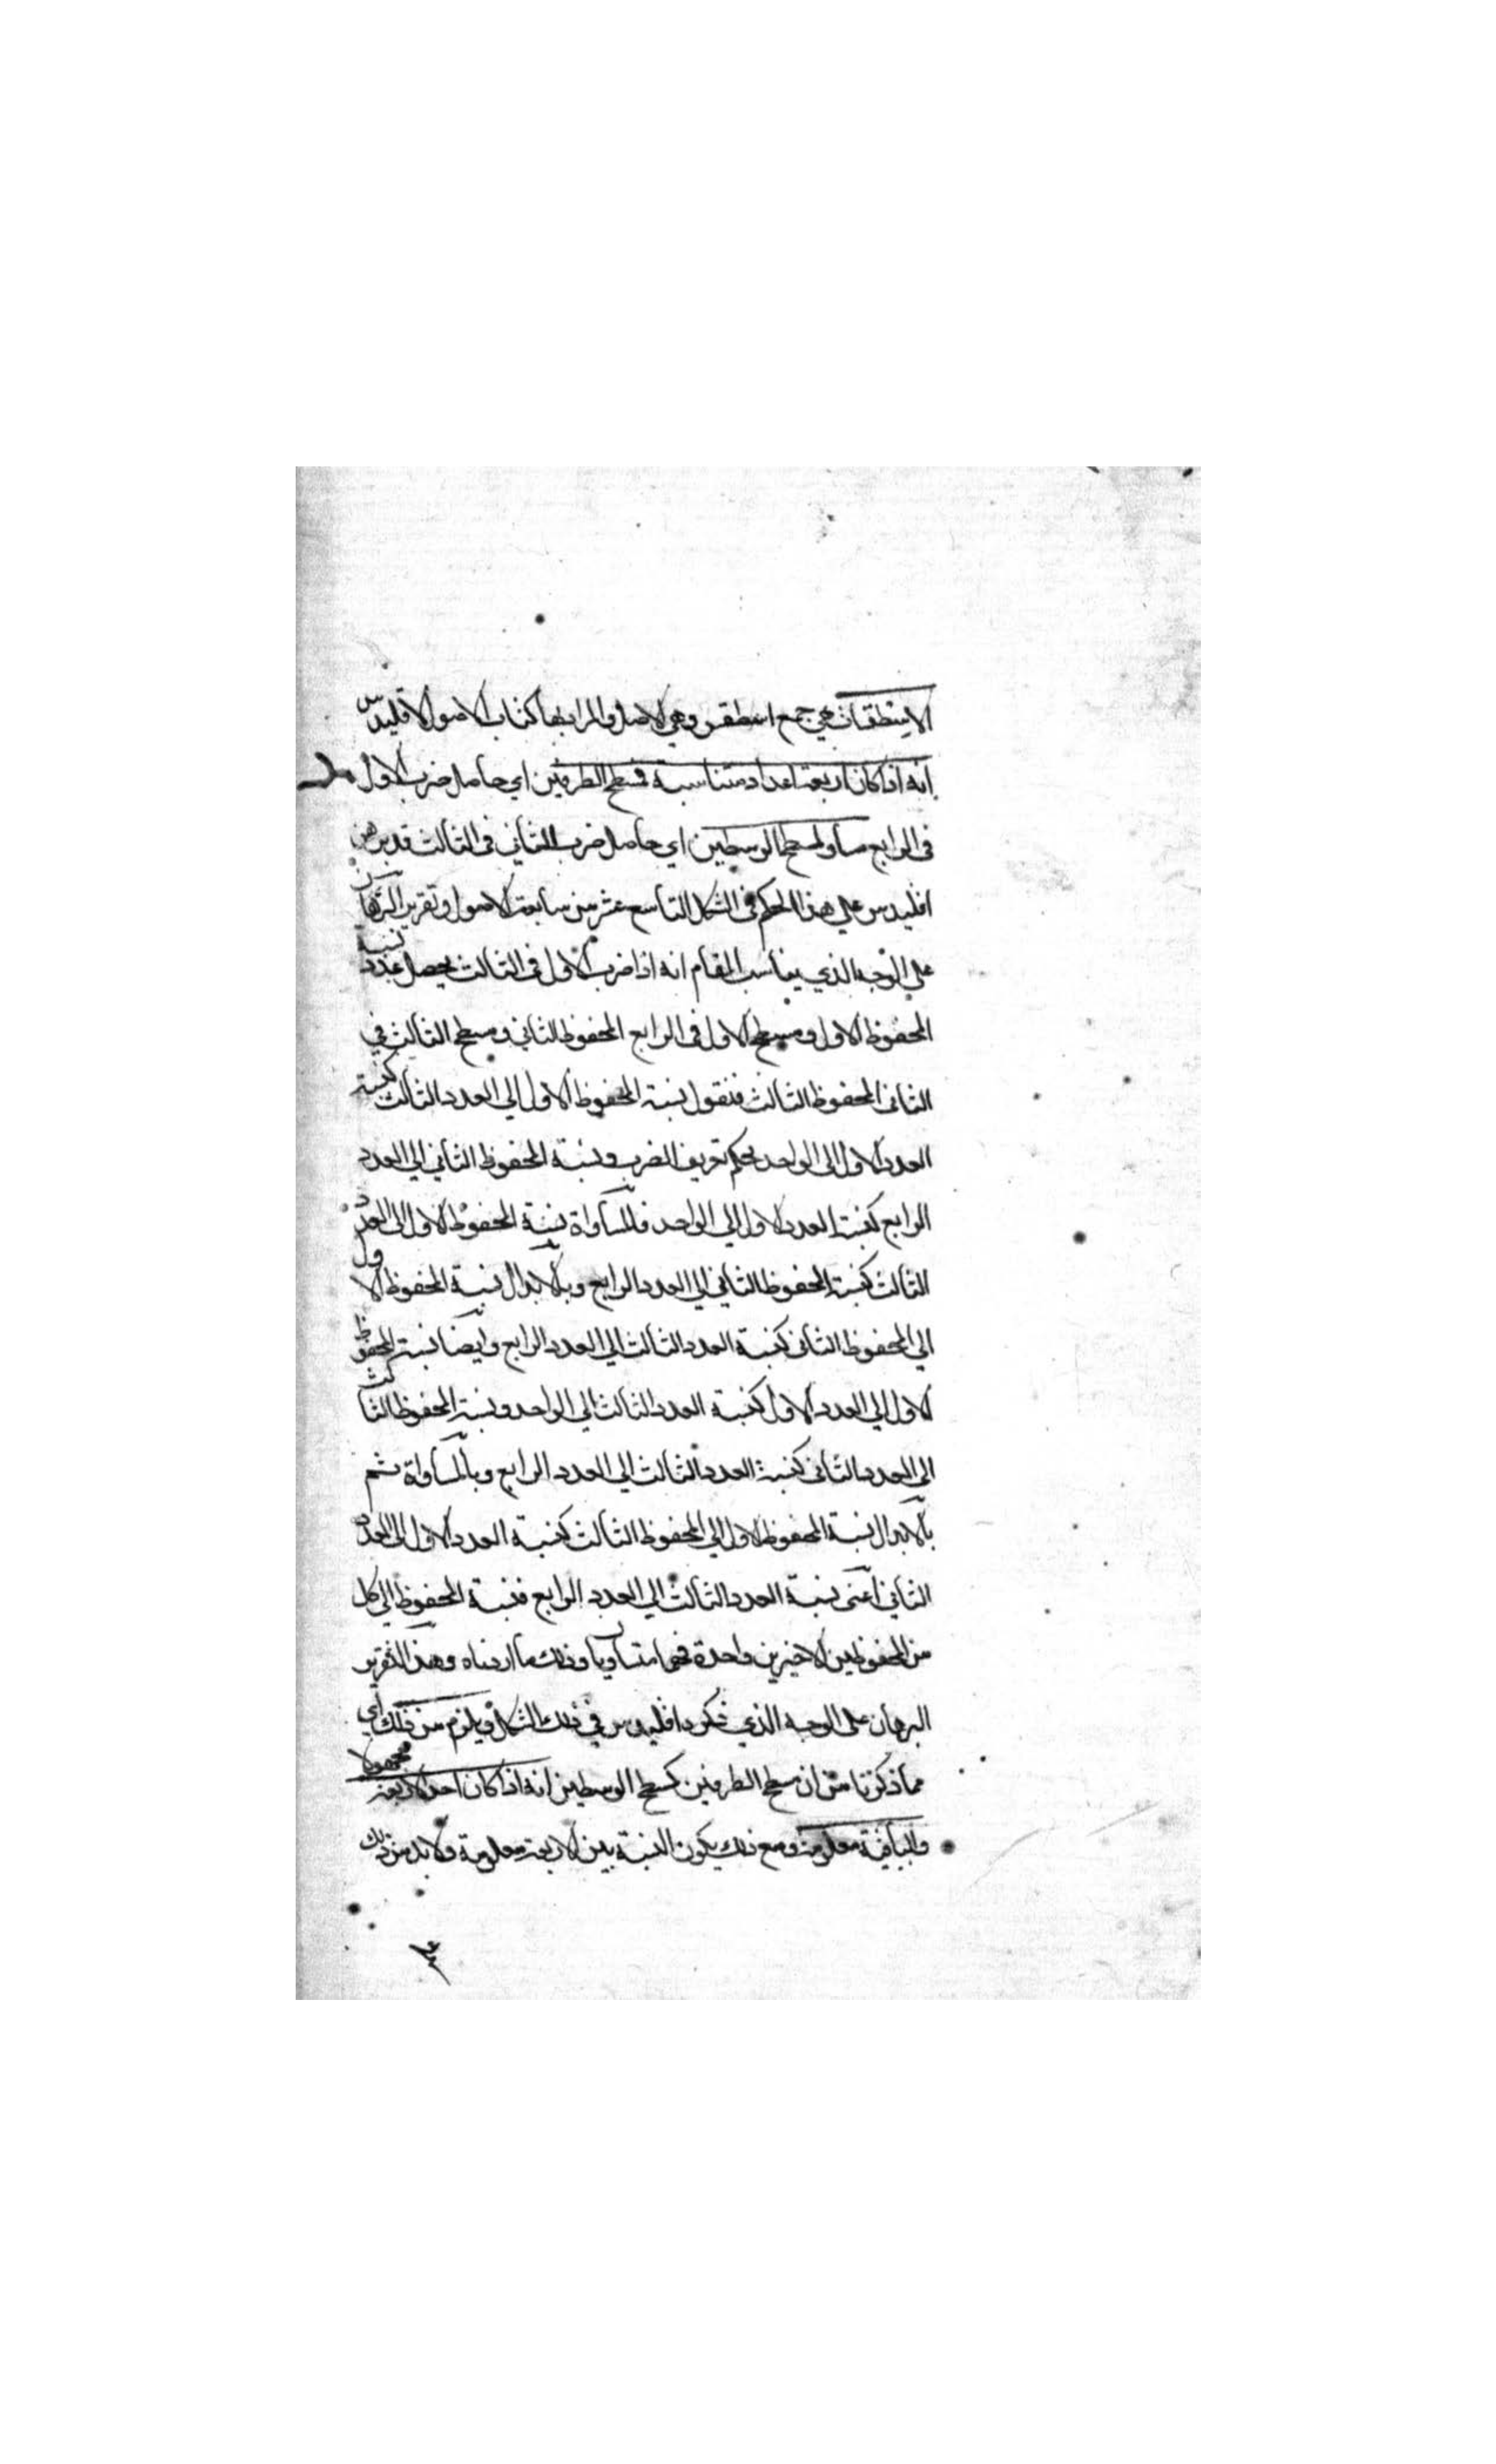 الاسطقسات هي جمع اسطقس وهي الاصل والمراد بها كتاب الاصول لاقليدس
انه اذا كان اربعة اعداد متناسبة فسطح الطرفين اي حاصل ضرب الاول
في الرابع مساو لمسطح الوسطين اي حاصل ضرب الثاني في الثالث قد برهن
اقليدس علي هذا الحكم في الشكل التاسع عشر من سابعة الاصول وتقرير البرهان
علي الوجه الذي يناسب المقام انه اذا ضرب الاول في الثالث يحصل عدد نسميه
المحفوظ الاول ومسطح الاول في الرابع المحفوظ الثاني ومسطح الثالث في
الثاني المحفوظ الثالث فنقول نسبة المحفوظ الاول الي العدد الثالث كنسبة
العدد الاول الي الواحد بحكم تعريف الضرب ونسبة المحفوظ الثاني الي العدد
الرابع كنسبة العدد الاول الي الواحد فالمساواة نسبة المحفوظ الاول الي العدد
الثالث كنسبة المحفوظ الثاني الي العدد الرابع وبالابدال نسبة المحفوظ الاول
الي المحفوظ الثاني كنسبة العدد الثالث الي العدد الرابع وايضا نسبة المحفوظ
الاول الي العدد الاول كنسبة العدد الثالث الي الواحد ونسبة المحفوظ الثالث
الي العدد الثاني كنسبة العدد الثالث الي العدد الرابع وبالمساواة ثم
بالابدال نسبة المحفوظ الاول الي المحفوظ الثالث كنسبة العدد الاول الي العدد
الثاني اعني نسبة العدد الثالث الي العدد الرابع فنسبة المحفوظ الي كل
من المحفوظين الاخيرين واحدة فهما متساويان وذلك ما اردناه وهذا التقرير
البرهان علي الوجه الذي ذكره اقليدس في ذلك الشكل ويلزم من ذلك اي
مما ذكرنا من ان مسطح الطرفين كسطح الوسطين انه اذا كان احد الاربعة مجهولا
والباقية معلومة ومع ذلك يكون النسبة بين الاربعة معلومة ولا بد من ذلك